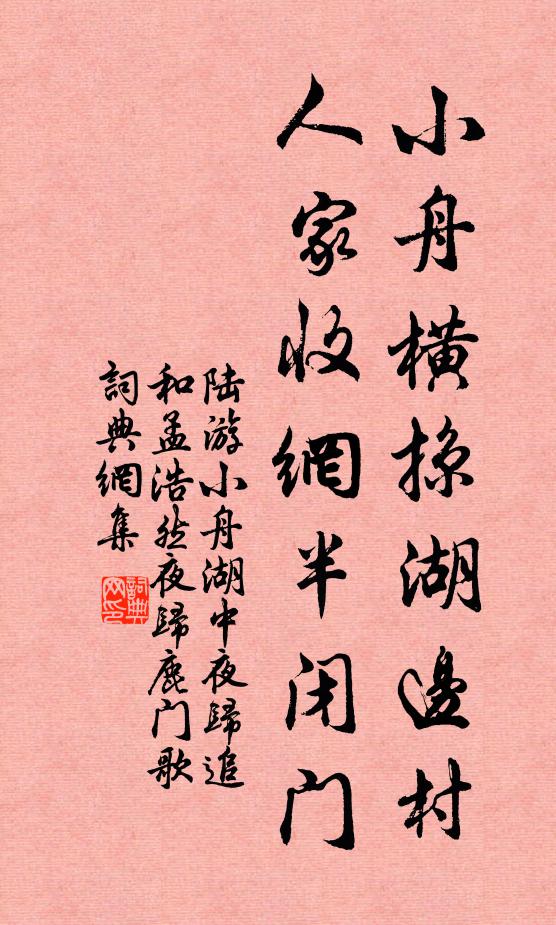 小舟橫掠湖邊村
人家收網半閉门
陆游小舟湖中夜歸追
和孟浩然夜歸鹿门歌
詞典網集
詞典
网印